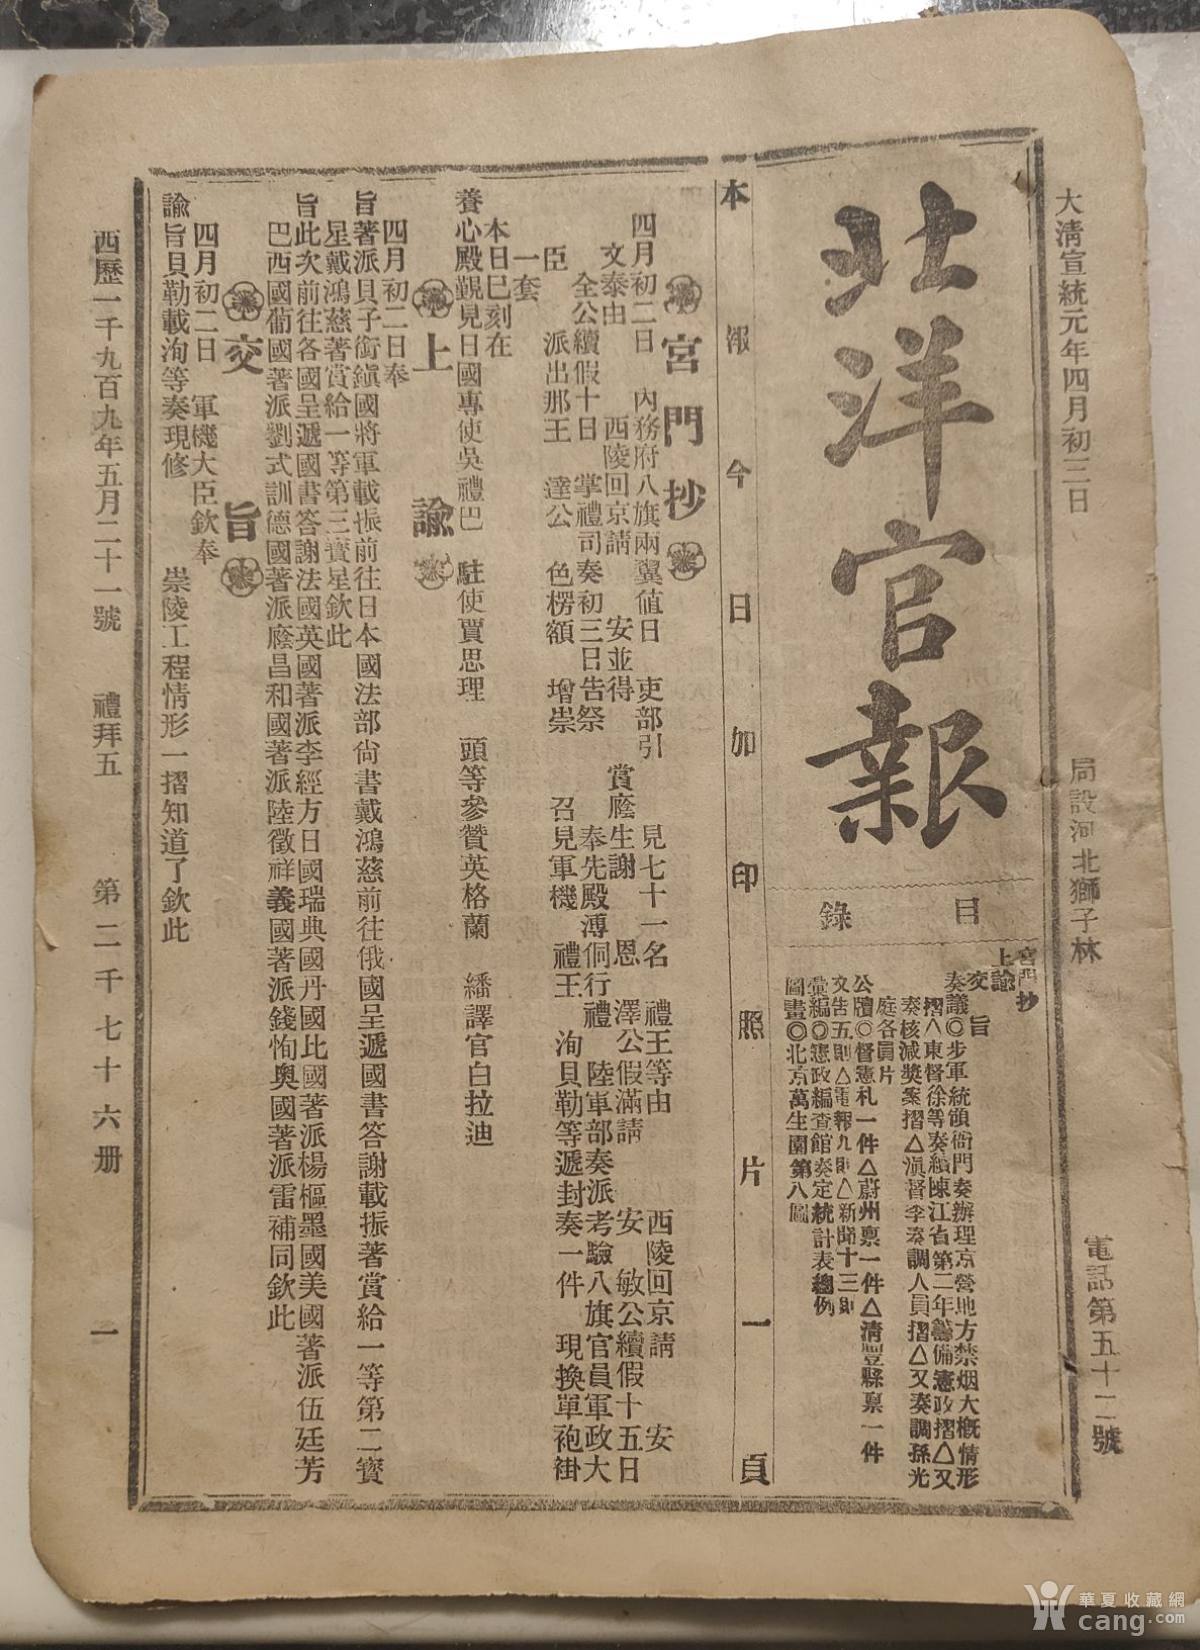 大清宣統元年四月初三日
局設河北獅子林
電話第五十二號
北洋官報
目錄
宮門抄
上諭
交旨
奏議◎步軍統領衙門奏辦理京營地方禁烟大概情形
摺△東督徐等奏續陳江省第二年籌備憲政摺△又
奏核減獎案摺△滇督李奏調人員摺△又奏調孫光
庭各員片
公牘◎督憲札一件△蔚州禀一件△清豐縣禀一件
文告五則△電報九則△新聞十三則
彙編◎憲政編查館奏定統計表總例
圖畫◎北京萬生園第八圖
本報今日加印照片一頁
宮門抄
四月初二日 內務府八旗兩翼值日 吏部引 見七十一名 禮王等由 西陵回京請 安
文泰由 西陵回京請 安並得 賞廕生謝 恩 澤公假滿請 安 敏公續假十五日
全公續假十日 掌禮司奏初三日告祭 奉先殿溥侗行禮 陸軍部奏派考驗八旗官員軍政大
臣 派出那王 達公 色楞額 增崇 召見軍機 禮王 洵貝勒等遞封奏一件 現換單袍褂
一套
本日巳刻在
養心殿覲見日國專使吳禮巴 駐使賈思理 頭等參贊英格蘭 繙譯官白拉迪
上諭
四月初二日奉
旨著派貝子銜鎮國將軍載振前往日本國法部尚書戴鴻慈前往俄國呈遞國書答謝載振著賞給一等第二寶
星戴鴻慈著賞給一等第三寶星欽此
旨此次前往各國呈遞國書答謝法國英國著派李經方日國瑞典國丹國比國著派楊樞墨國美國著派伍廷芳
巴西國葡國著派劉式訓德國著派廕昌和國著派陸徵祥義國著派錢恂奧國著派雷補同欽此
交旨
四月初二日 軍機大臣欽奉
諭旨貝勒載洵等奏現修 崇陵工程情形一摺知道了欽此
西歷一千九百九年五月二十一號 禮拜五 第二千七十六册 一
華夏收藏網
cang.com